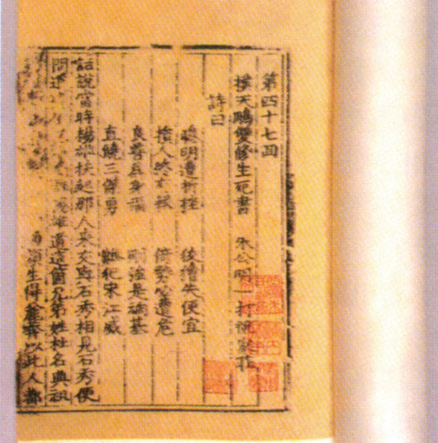 第四十七回
撲天鵰雙修生死書 宋公明一打祝家莊
詩曰
聰明遭折挫 失便宜
損人終有報 倚勢必遭危
良善為身福 剛強是禍基
直饒三傑勇 難犯宋江威
話說當時楊雄扶起那人來交與石秀相見石秀便
問道 雄道這個兄弟姓杜名興祖
顏生得麤莽以此人都